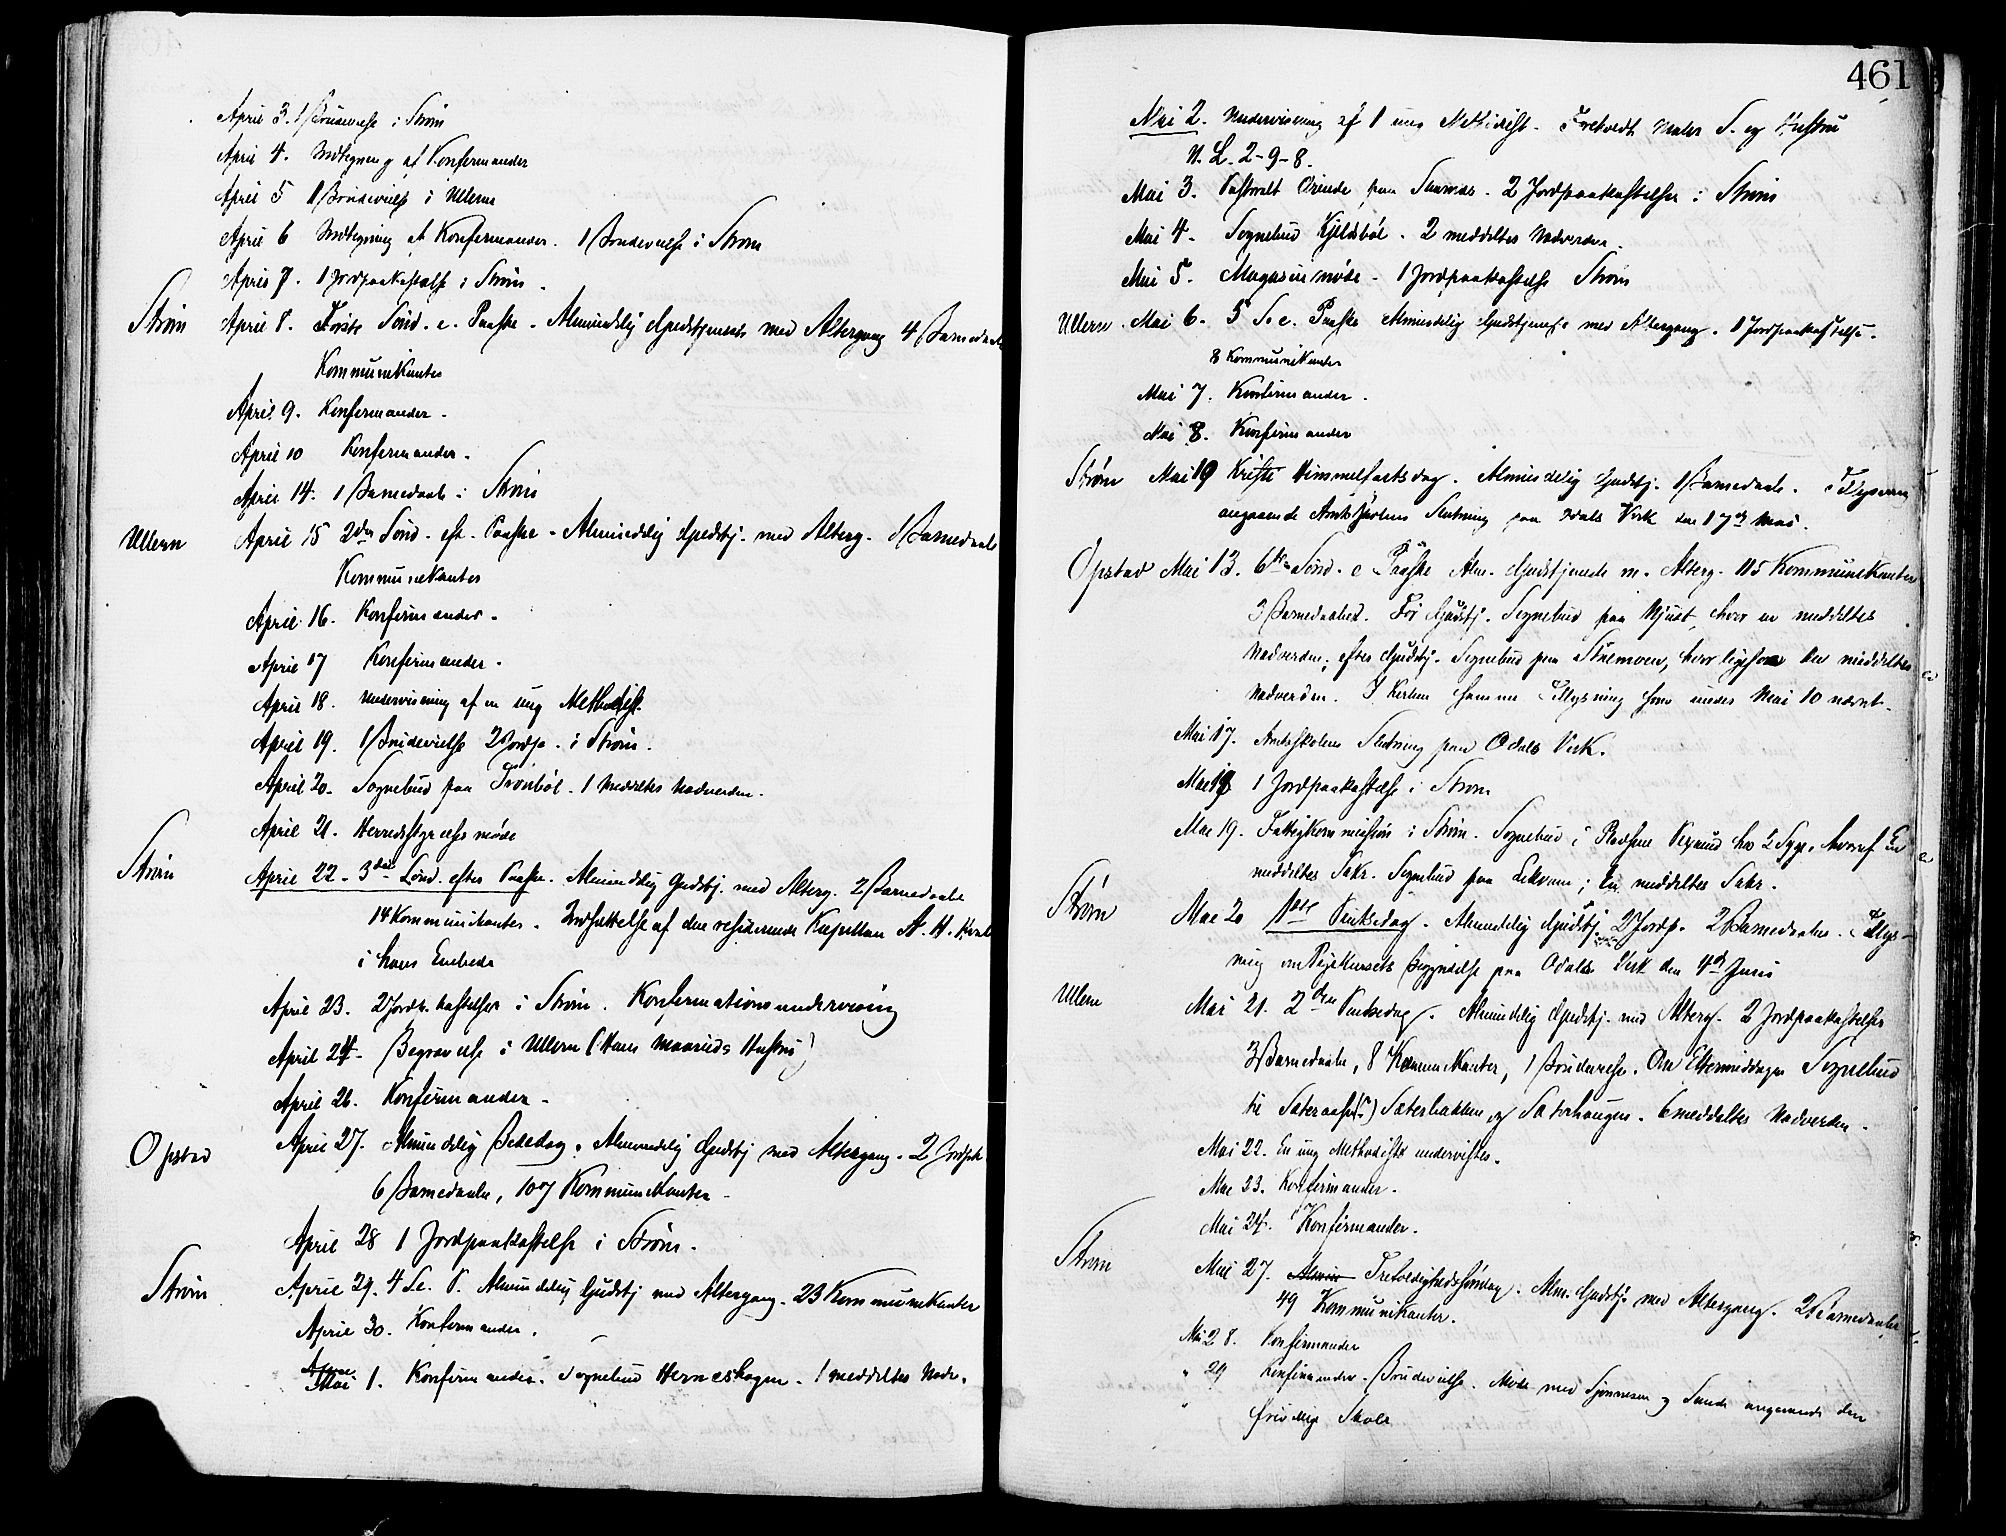 April 3. 1 Brudevielse i Strøm
April 4. Indtegning af Konfirmander
April 5 1 Brudevielse i Ullern
April 6 Indtegning af Konfirmander. 1 Brudevielse i Strøm
April 7. 1 Jordpaakastelse i Strøm.
Strøm April 8. Første Sønd. e. Paaske. Almindelig Gudstjeneste med Altergang 4 Barnedaab
Kommunikanter
April 9. Konfirmander.
April 10 Konfirmander.
April 14. 1 Barnedaab i Strøm
Ullern April 15 2den Sønd. eft. Paaske. Almindelig Gudstj. med Alterg. 1 Barnedaab
Kommunikanter
April 16. Konfirmander.
April 17 Konfirmander.
April 18. Undervisning af en ung Methodist.
April 19. 1 Brudevielse 2 Jordp. i Strøm.
April 20. Sognebud paa Trønbøl. 1 meddeltes Nadverden.
April 21. Herredsstyrelsesmøde
Strøm April 22. 3die Sønd. efter Paaske. Almindelig Gudstj. med Alterg. 2 Barnedaab
14 Kommunikanter. Indsættelse af den residerende Kapellan A. H.
i hans Embede
April 23. 2 Jordp.kastelser i Strøm. Konfirmationsundervisning
April 24. Begravelse i Ullern (Hans Maaruds Hustru)
April 26. Konfirmander.
Opstad April 27. Almindelig Bededag. Almindelig Gudstj med Altergang. 2 Jordpk
6 Barnedaabe, 107 Kommunikanter.
April 28 1 Jordpaakastelse i Strøm.
Strøm April 29. 4 S. e. P. Almindelig Gudstj med Altergang. 23 Kommunikanter
April 30. Konfirmander.
April
Mai 1. Konfirmander. Sognebud Herneskogen. 1 meddeltes Nadv.
461
Mai 2. Undervisning af 1 ung Methodist. S. og Hustru
N. L. 2-9-8.
Mai 3. Ærinde paa 2 Jordpaakastelser i Strøm
Mai 4. Sognebud Kjeldsbøl. 2 meddeltes Nadverden.
Mai 5. Magasinmøde. 1 Jordpaakastelse Strøm
Ullern. Mai 6. 5 S. e. Paaske Almindelig Gudstjeneste med Altergang. 1 Jordpaakastelse.
8 Kommunikanter
Mai 7. Konfirmander.
Mai 8. Konfirmander
Strøm Mai 10 Kristi Himmelfartsdag. Almindelig Gudstj. 1 Barnedaab. Tillysning
angaaende Amtsskolens Slutning paa Odals Verk den 17de Mai.
Opstad Mai 13. 6te Sønd. e Paaske Alm. Gudstjeneste m. Alterg. 115 Kommunikanter
3 Barnedaaber. Før Gudstj. Sognebud paa Njust, hvor en meddeltes
Nadverden; efter Gudstj. Sognebud paa hvor ligesaa En meddeltes
Nadverden. I Kirken samme Tillysning som under Mai 10 nævnt.
Mai 17. Amtsskolens Slutning paa Odals Verk.
Mai 18 1 Jordpaakastelse i Strøm
Mai 19. Fattigkommission i Strøm. Sognebud i hos 2 Syge, hvoraf En
meddeltes Sakr. Sognebud paa Lekvam; En meddeltes Sakr.
Strøm Mai 20 1ste Pintsedag. Almindelig Gudstj. 2 Jordp. 2 Barnedaabe. Tillys-
ning om Pigekursets Begyndelse paa Odals Verk den 4de Juni
Ullern Mai 21. 2den Pintsedag. Almindelig Gudstj. med Alterg. 2 Jordpaakastelser
3 Barnedaabe, 8 Kommunikanter, 1 Brudevielse. Om Eftermiddagen Sognebud
til Sæteraasen(?) Sæterbakken og Sæterhaugen. 6 meddeltes Nadverden.
Mai 22. En ung Methodist undervistes.
Mai 23. Konfirmander.
Mai 24. Konfirmander.
Strøm Mai 27. Almin Trefoldighedssøndag. Alm. Gudstj. med Altergang. 2 Barnedaabe
49 Kommunikanter.
Mai 28. Konfirmander
" 29 Konfirmander. Brudevielse. Møde med Sjønnesen og Sande angaaende den
" frivillige Skole